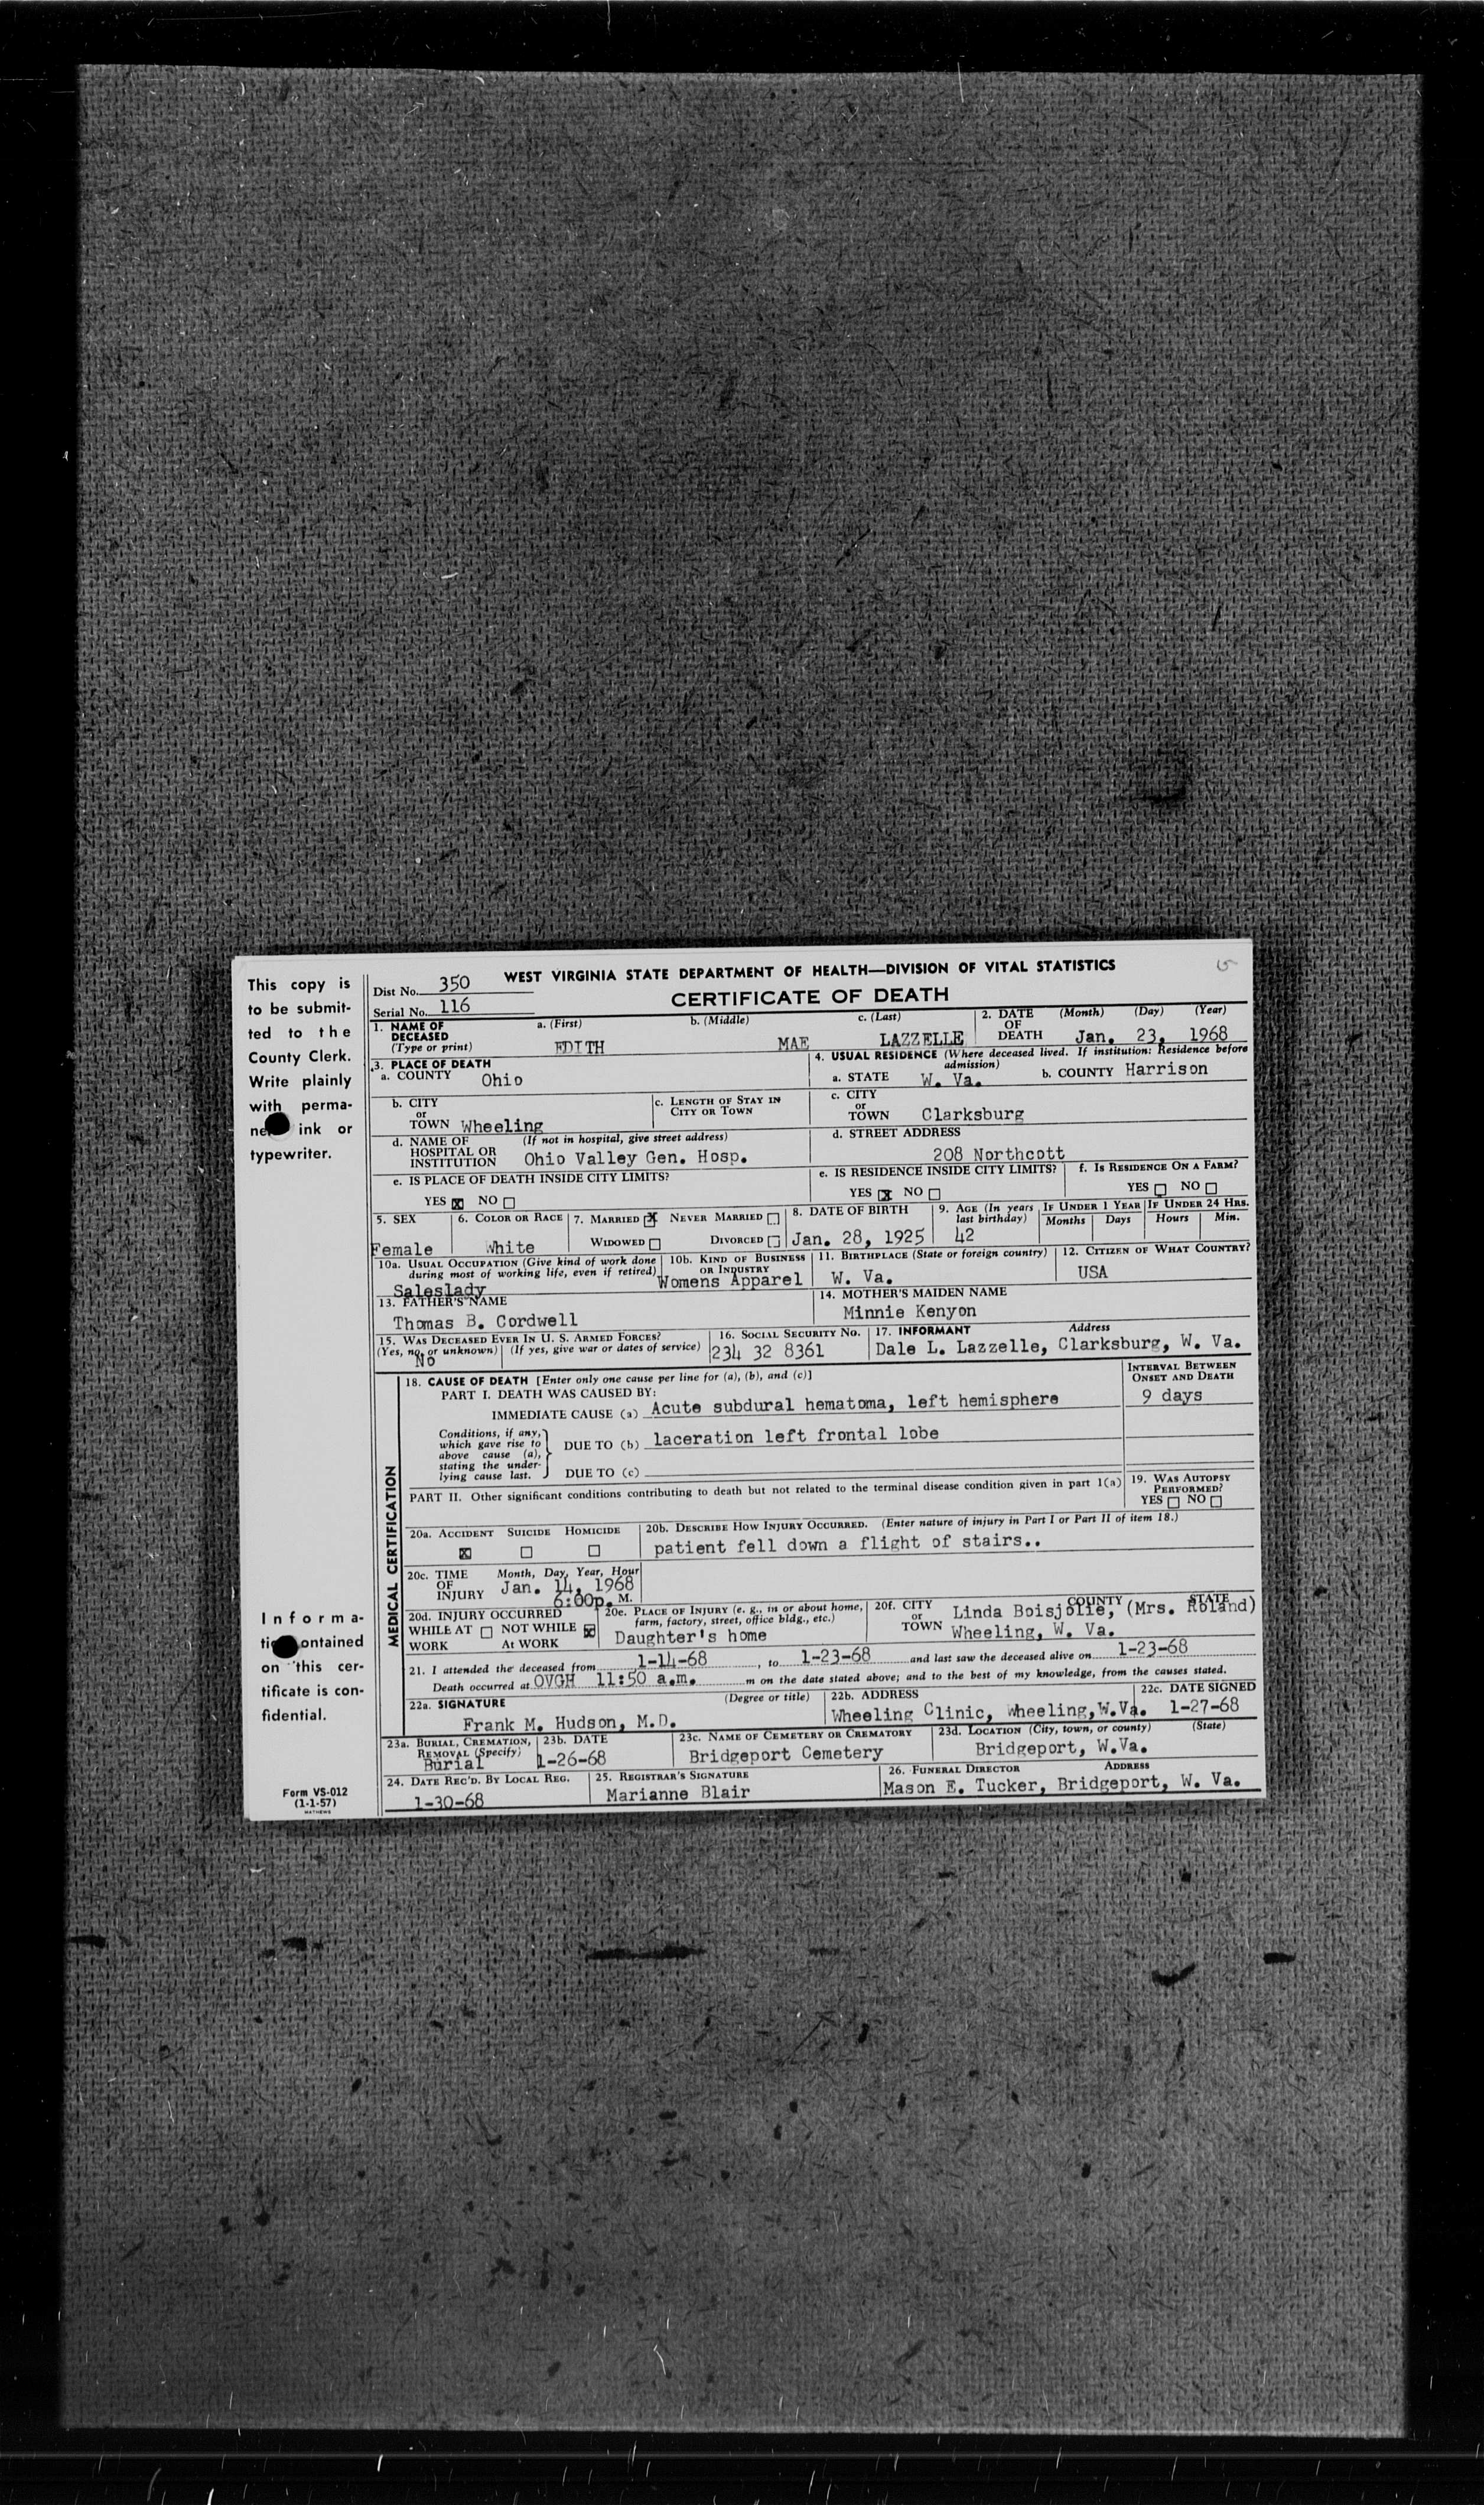 This copy is
to be submit-
ted to the
County Clerk.
Write plainly
with perma-
ink or
typewriter.
WEST VIRGINIA STATE DEPARTMENT OF HEALTH—DIVISION OF VITAL STATISTICS
Dist No. 350
CERTIFICATE OF DEATH
Serial No. 116
1. NAME OF DECEASED (Type or print) a. (First) EDITH b. (Middle) MAE c. (Last) LAZZELLE
2. DATE OF DEATH (Month) (Day) (Year) Jan. 23, 1968
3. PLACE OF DEATH
a. COUNTY Ohio
4. USUAL RESIDENCE (Where deceased lived. If institution: Residence before admission)
a. STATE W. Va. b. COUNTY Harrison
b. CITY or TOWN Wheeling
c. LENGTH OF STAY IN CITY OR TOWN
c. CITY or TOWN Clarksburg
d. NAME OF HOSPITAL OR INSTITUTION (If not in hospital, give street address) Ohio Valley Gen. Hosp.
d. STREET ADDRESS 208 Northcott
e. IS PLACE OF DEATH INSIDE CITY LIMITS?
YES ☒ NO ☐
e. IS RESIDENCE INSIDE CITY LIMITS?
YES ☒ NO ☐
f. IS RESIDENCE ON A FARM?
YES ☐ NO ☐
5. SEX Female
6. COLOR OR RACE White
7. MARRIED ☒ NEVER MARRIED ☐
WIDOWED ☐ DIVORCED ☐
8. DATE OF BIRTH Jan. 28, 1925
9. AGE (In years last birthday) 42
IF UNDER 1 YEAR Months Days
IF UNDER 24 HRS. Hours Min.
10a. USUAL OCCUPATION (Give kind of work done during most of working life, even if retired) Saleslady
10b. KIND OF BUSINESS OR INDUSTRY Womens Apparel
11. BIRTHPLACE (State or foreign country) W. Va.
12. CITIZEN OF WHAT COUNTRY? USA
13. FATHER'S NAME Thomas B. Cordwell
14. MOTHER'S MAIDEN NAME Minnie Kenyon
15. WAS DECEASED EVER IN U. S. ARMED FORCES?
(Yes, no, or unknown) No (If yes, give war or dates of service)
16. SOCIAL SECURITY NO. 234 32 8361
17. INFORMANT Address
Dale L. Lazzelle, Clarksburg, W. Va.
MEDICAL CERTIFICATION
18. CAUSE OF DEATH [Enter only one cause per line for (a), (b), and (c)]
INTERVAL BETWEEN ONSET AND DEATH
PART I. DEATH WAS CAUSED BY:
IMMEDIATE CAUSE (a) Acute subdural hematoma, left hemisphere 9 days
Conditions, if any, which gave rise to above cause (a), stating the underlying cause last.
DUE TO (b) laceration left frontal lobe
DUE TO (c)
PART II. Other significant conditions contributing to death but not related to the terminal disease condition given in part 1(a)
19. WAS AUTOPSY PERFORMED?
YES ☐ NO ☐
20a. ACCIDENT ☒ SUICIDE ☐ HOMICIDE ☐
20b. DESCRIBE HOW INJURY OCCURRED. (Enter nature of injury in Part I or Part II of item 18.)
patient fell down a flight of stairs..
20c. TIME OF INJURY Month, Day, Year, Hour
Jan. 14, 1968
6:00p. M.
20d. INJURY OCCURRED
WHILE AT WORK ☐ NOT WHILE At WORK ☒
20e. PLACE OF INJURY (e. g., in or about home, farm, factory, street, office bldg., etc.)
Daughter's home
20f. CITY or TOWN COUNTY STATE
Linda Boisjolie, (Mrs. Roland)
Wheeling, W. Va.
21. I attended the deceased from 1-14-68, to 1-23-68 and last saw the deceased alive on 1-23-68
Death occurred at OVGH 11:50 a.m. m on the date stated above; and to the best of my knowledge, from the causes stated.
22a. SIGNATURE (Degree or title) Frank M. Hudson, M.D.
22b. ADDRESS Wheeling Clinic, Wheeling,W.Va.
22c. DATE SIGNED 1-27-68
23a. BURIAL, CREMATION, REMOVAL (Specify) Burial
23b. DATE 1-26-68
23c. NAME OF CEMETERY OR CREMATORY Bridgeport Cemetery
23d. LOCATION (City, town, or county) (State) Bridgeport, W.Va.
24. DATE REC'D. BY LOCAL REG. 1-30-68
25. REGISTRAR'S SIGNATURE Marianne Blair
26. FUNERAL DIRECTOR ADDRESS
Mason E. Tucker, Bridgeport, W. Va.
Informa-
ontained
on this cer-
tificate is con-
fidential.
Form VS-012
(1-1-57)